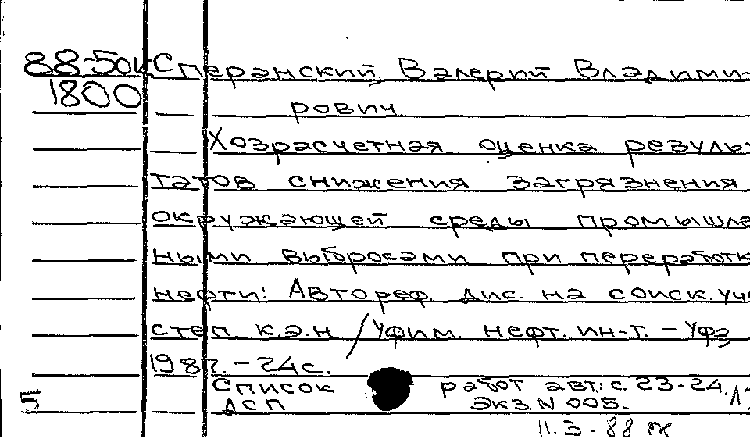 88-50к Сперанский, Валерий Владими-
1800 рович
Хозрасчетная оценка резуль-
татов снижения загрязнения
окружающей среды промышлен
ными выбросами при переработк
нефти: Автореф. дис. на соиск. уч
степ. к.э.н / Уфим. нефт. ин-т. - Уфа
1987. - 24 с.
Список работ авт.: с. 23-24.
5 ДСП Экз. N 005.
11.3-88